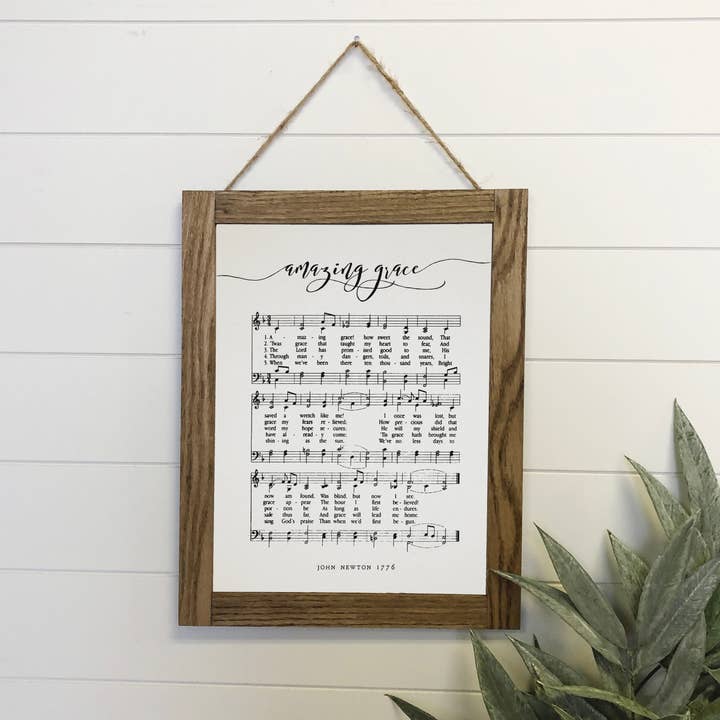 amazing grace
1. A - maz - ing grace! how sweet the sound, That
2. 'Twas grace that taught my heart to fear, And
3. The Lord has prom - ised good to me, His
4. Through man - y dan - gers, toils, and snares, I
5. When we've been there ten thou - sand years, Bright
saved a wretch like me! I once was lost, but
grace my fears re - lieved. How pre - cious did that
word my hope se - cures. He will my shield and
have al - read - y come. 'Tis grace hath brought me
shin - ing as the sun. We've no less days to
now am found, Was blind, but now I see.
grace ap - pear The hour I first be - lieved!
por - tion be As long as life en - dures.
safe thus far, And grace will lead me home.
sing God's praise Than when we'd first be - gun.
JOHN NEWTON 1776